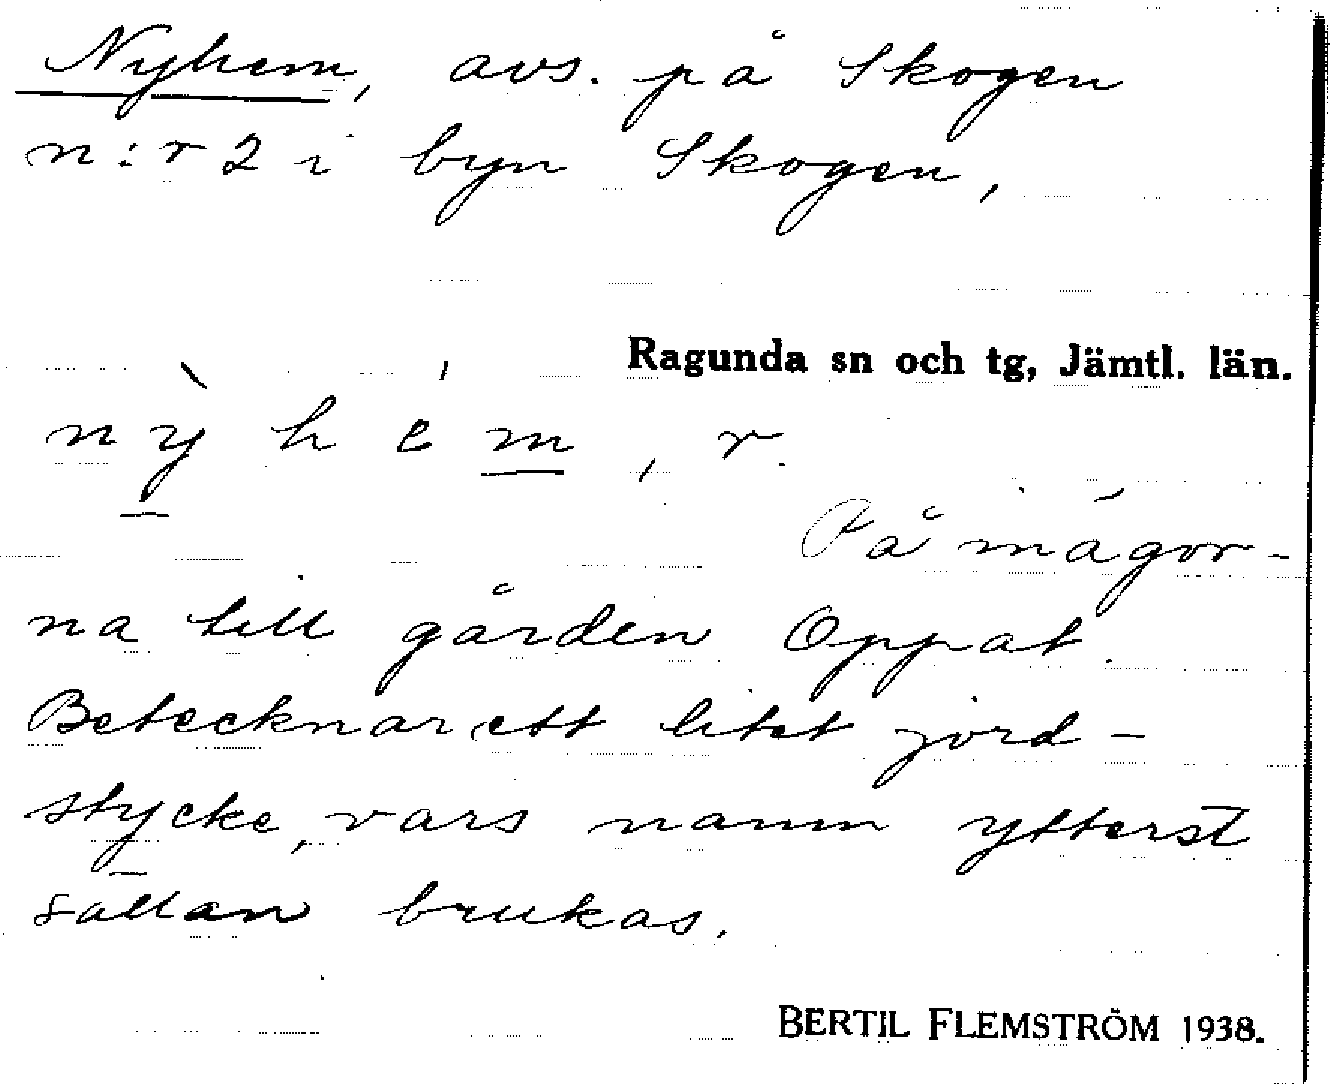 Nyhem, avs. på Skogen
n:r 2 i byn Skogen,
Ragunda sn och tg, Jämtl. län.
nỳ̠ h é m̲, r.
På inägor-
na till gården Oppat.
Betecknar ett litet jord-
stycke, vars namn ytterst
sällan brukas.
BERTIL FLEMSTRÖM 1938.